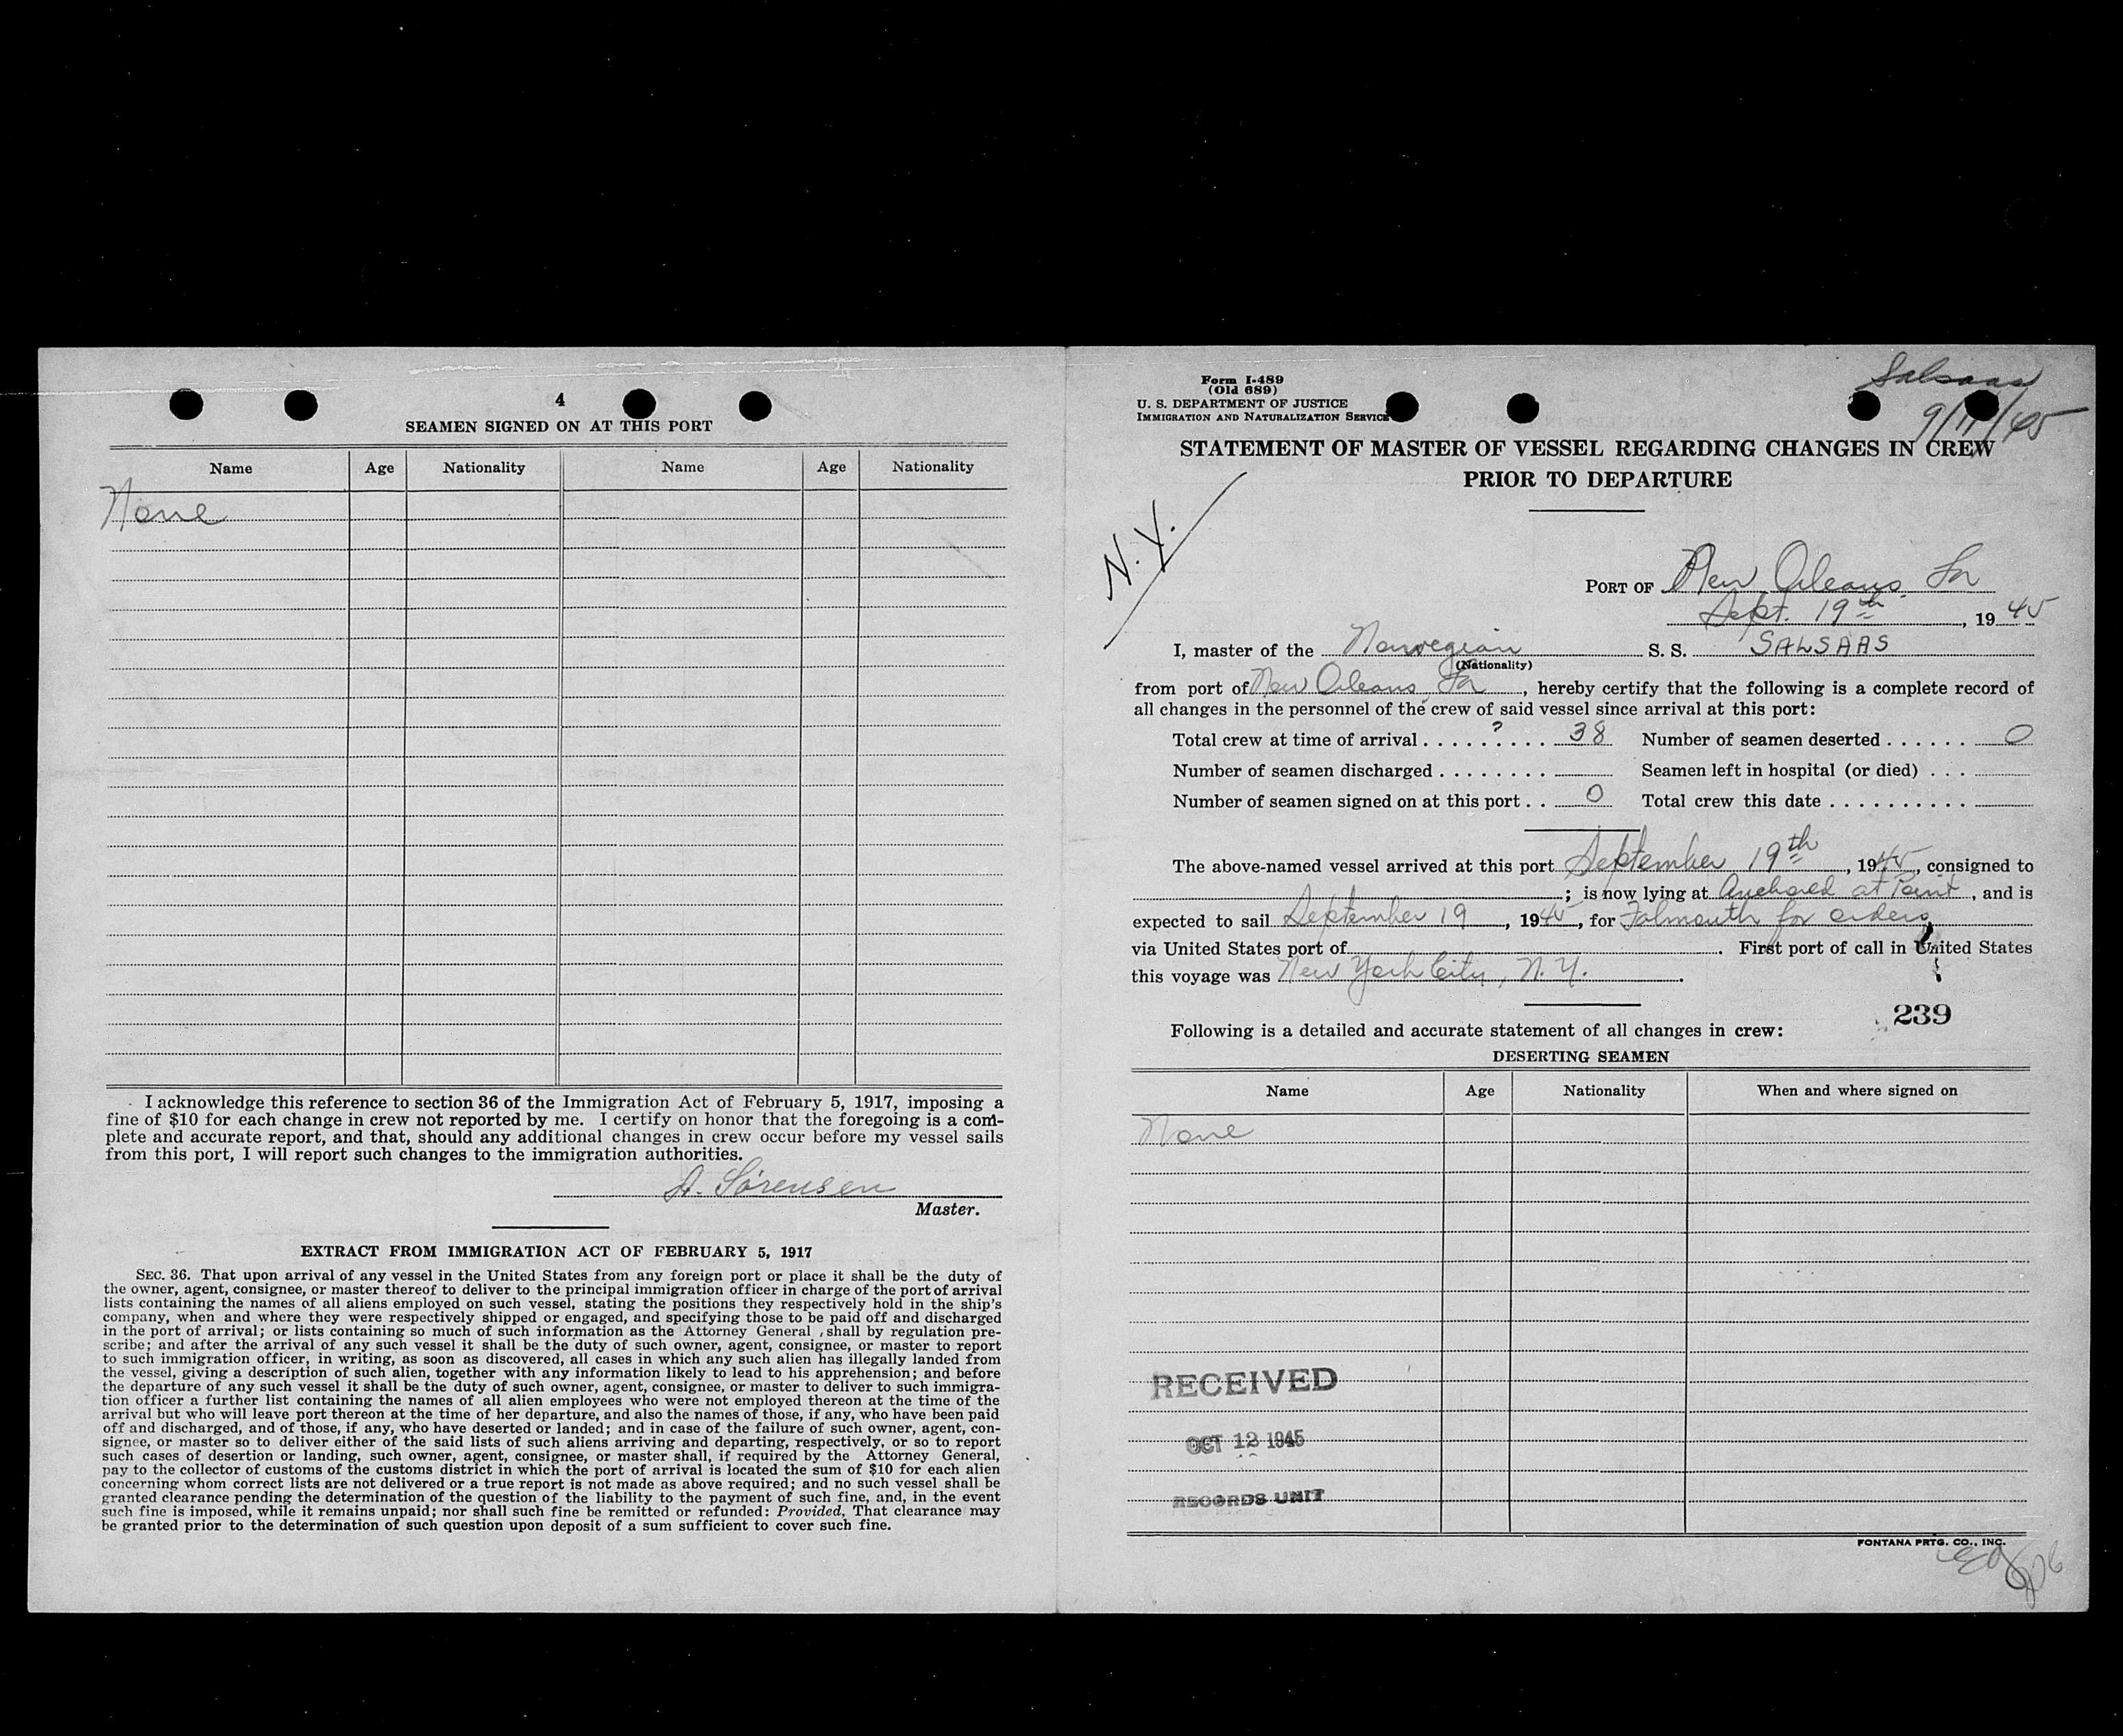 4
SEAMEN SIGNED ON AT THIS PORT
Name Age Nationality Name Age Nationality
None
I acknowledge this reference to section 36 of the Immigration Act of February 5, 1917, imposing a
fine of $10 for each change in crew not reported by me. I certify on honor that the foregoing is a com-
plete and accurate report, and that, should any additional changes in crew occur before my vessel sails
from this port, I will report such changes to the immigration authorities.
A. Sörensen
Master.
EXTRACT FROM IMMIGRATION ACT OF FEBRUARY 5, 1917
SEC. 36. That upon arrival of any vessel in the United States from any foreign port or place it shall be the duty of
the owner, agent, consignee, or master thereof to deliver to the principal immigration officer in charge of the port of arrival
lists containing the names of all aliens employed on such vessel, stating the positions they respectively hold in the ship's
company, when and where they were respectively shipped or engaged, and specifying those to be paid off and discharged
in the port of arrival; or lists containing so much of such information as the Attorney General shall by regulation pre-
scribe; and after the arrival of any such vessel it shall be the duty of such owner, agent, consignee, or master to report
to such immigration officer, in writing, as soon as discovered, all cases in which any such alien has illegally landed from
the vessel, giving a description of such alien, together with any information likely to lead to his apprehension; and before
the departure of any such vessel it shall be the duty of such owner, agent, consignee, or master to deliver to such immigra-
tion officer a further list containing the names of all alien employees who were not employed thereon at the time of the
arrival but who will leave port thereon at the time of her departure, and also the names of those, if any, who have been paid
off and discharged, and of those, if any, who have deserted or landed; and in case of the failure of such owner, agent, con-
signee, or master so to deliver either of the said lists of such aliens arriving and departing, respectively, or so to report
such cases of desertion or landing, such owner, agent, consignee, or master shall, if required by the Attorney General,
pay to the collector of customs of the customs district in which the port of arrival is located the sum of $10 for each alien
concerning whom correct lists are not delivered or a true report is not made as above required; and no such vessel shall be
granted clearance pending the determination of the question of the liability to the payment of such fine, and, in the event
such fine is imposed, while it remains unpaid; nor shall such fine be remitted or refunded: Provided, That clearance may
be granted prior to the determination of such question upon deposit of a sum sufficient to cover such fine.
Form I-489
(Old 689)
U. S. DEPARTMENT OF JUSTICE
IMMIGRATION AND NATURALIZATION SERVICE
Salsaas
STATEMENT OF MASTER OF VESSEL REGARDING CHANGES IN CREW
PRIOR TO DEPARTURE
N. Y.
PORT OF New Orleans, La
Sept. 19th, 1945
I, master of the Norwegian S. S. SALSAAS
(Nationality)
from port of New Orleans, La, hereby certify that the following is a complete record of
all changes in the personnel of the crew of said vessel since arrival at this port:
Total crew at time of arrival . . . . . ? . . . . 38 Number of seamen deserted . . . . . . 0
Number of seamen discharged . . . . . . . . Seamen left in hospital (or died) . . .
Number of seamen signed on at this port . . 0 Total crew this date . . . . . . . . . .
The above-named vessel arrived at this port September 19th, 1945, consigned to
; is now lying at Anchored at Point, and is
expected to sail September 19, 1945, for Falmouth for orders
via United States port of . First port of call in United States
this voyage was New York City, N. Y.
239
Following is a detailed and accurate statement of all changes in crew:
DESERTING SEAMEN
Name Age Nationality When and where signed on
None
RECEIVED
OCT 12 1945
RECORDS UNIT
FONTANA PRTG. CO., INC.